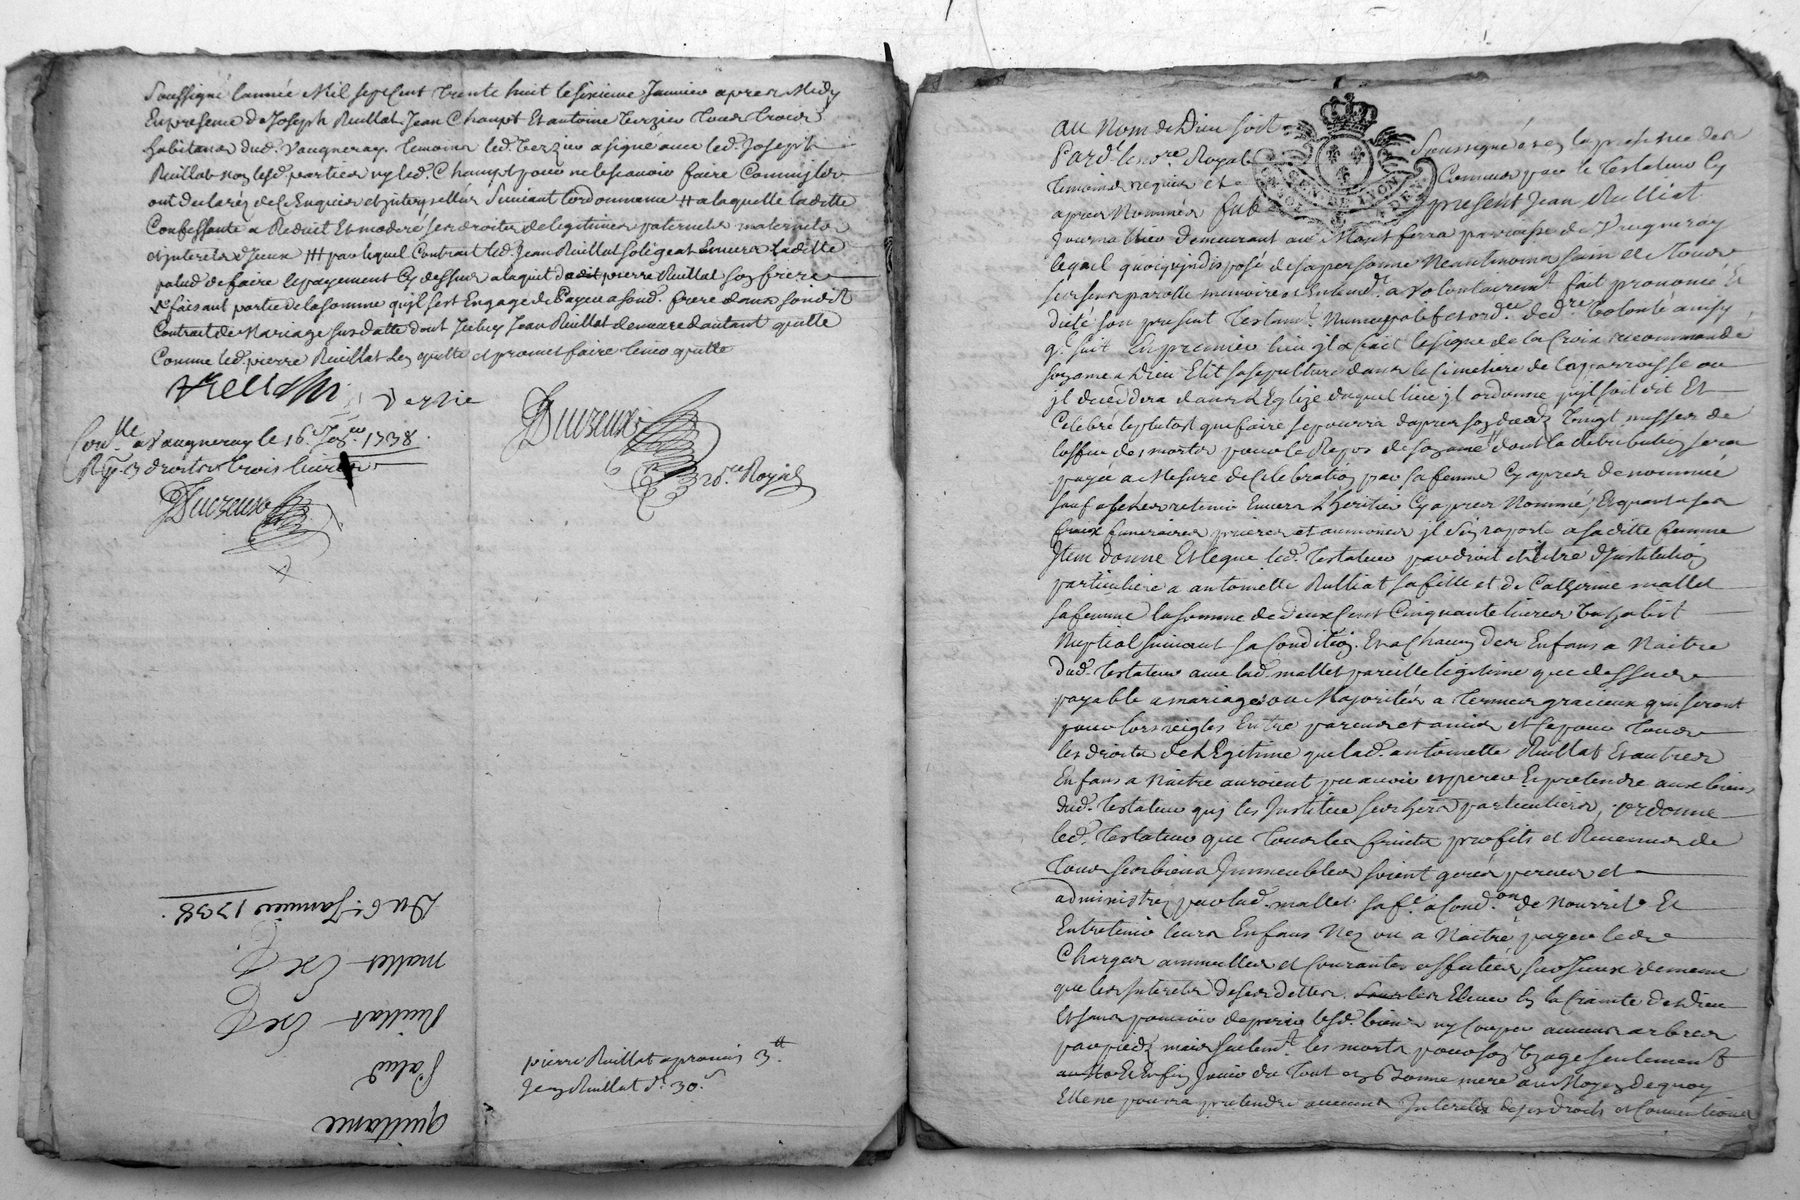 Soussigné l'année Mil sept Cent trente huit le sixieme Janvier apres Midy
En presence de Joseph Ruillat Jean Chaupt Et antoine terzier tous trois
habitans dud. Vaugneray temoins led. terzier a signé avec led. Joseph
Ruillat non lesd. parties ny led. Chaupt pour ne le scavoir faire Comm ils
ont declaréz de ce Enquis et interpellés Suivant lordonnance # a laquelle ladite
Confessante a Reduit Et moderé ses droits de legitimes paternels maternels
et interets d'Iceux ## par lequel Contrat led. Jean Ruillat soligeat Envers Ladite
palud de faire le payement Cy dessus a laquit dudit pierre Ruillat son frere
faisant partie de la somme quil sest Engagé de Payer a sond. frere dans sondit
Contrat de Mariage susdatté dont Iceluy Jean Ruillat demeure dautant quitte
Comme led. pierre Ruillat Len quitte et promet faire tenir quitte
Terzie
Ducreux
Conllé a Vaugneray le 16e Jer 1738.
R. droits trois livres
Ducreux
Nore Royal
Du 6e Janvier 1738.
mallet
Ruillat
Palud
quittance
pierre Ruillat a promis 3tt
Jean Ruillat d. 30s
au Nom de Dieu soit
Pard. le nore Royal Soussigné avec la presence des
temoins requis et Connus par le testateur Cy
apres Nommés fut present Jean Rulliat
Journallier demeurant au Mont ferra parroisse de Vaugneray
lequel quoiqu'indisposé de sa personne Neantmoins sain de tous
ses sens parolle memoire et Entend. a Volontairemt fait prononcé Et
dicté son present testamt Nuncupatif et ordre de dre Volonté ainsy
q. suit En premier lieu il a fait le signe de la Croix recommandé
son ame a Dieu Elit sa sepulture dans le Cimetiere de la parroisse ou
il decedera dans l'Eglize duquel lieu il ordonne quil soit dit Et
Celebré le plutot que faire se pourra dapres son decedz Vingt messes de
loffice des morts pour le Repos de son ame dont la retribution sera
payée a Mesure de Celebration par sa femme Cy apres denommée
sauf a les retenir Envers l'heritier Cy apres Nommé; Et quant a ses
fraix funeraires prieres et aumones il s'en raporte a sa ditte femme
Item donne Et legue led. testateur par droit et titre d'Institution
particuliere a antoinette Rulliat sa fille et de Catherine mallet
sa femme la somme de deux Cent Cinquante livres Un habit
Nuptial suivant sa Condition. Et a Chacun des Enfans a Naitre
dud. testateur avec lad. mallet pareille legitime que dessus
payable a mariages ou Majorités a termes gracieux qui seront
pour lors reiglés Entre parens et amis et ce pour tous
les droits de Legitime que lad. antoinette Ruillat Et autres
Enfans a Naitre auroient pu avoir esperer Et pretendre aux biens
dud. testateur qui les Institue ses hers particuliers; ordonne
led. testateur que tous les fruits profits et Revenus de
tous ses biens Immeubles soient gerés perçus et
administréz par lad. mallet sa fe a Condon de Nourrir Et
Entretenir leurs Enfans Nez ou a Naitre payer les
Charges annuelles et Courantes affectées sur Iceux de meme
que les Interets de ses dettes. les Elever En la Crainte de Dieu
Et sans pouvoir deperir lesd. biens ny Couper aucuns arbres
par pied; mais seulemt les morts pour son Uzage seulement
Et Enfin Jouir du tout en Bonne mere au Moyen de quoy
Elle ne pourra pretendre aucuns Interets de ses droits et Conventions